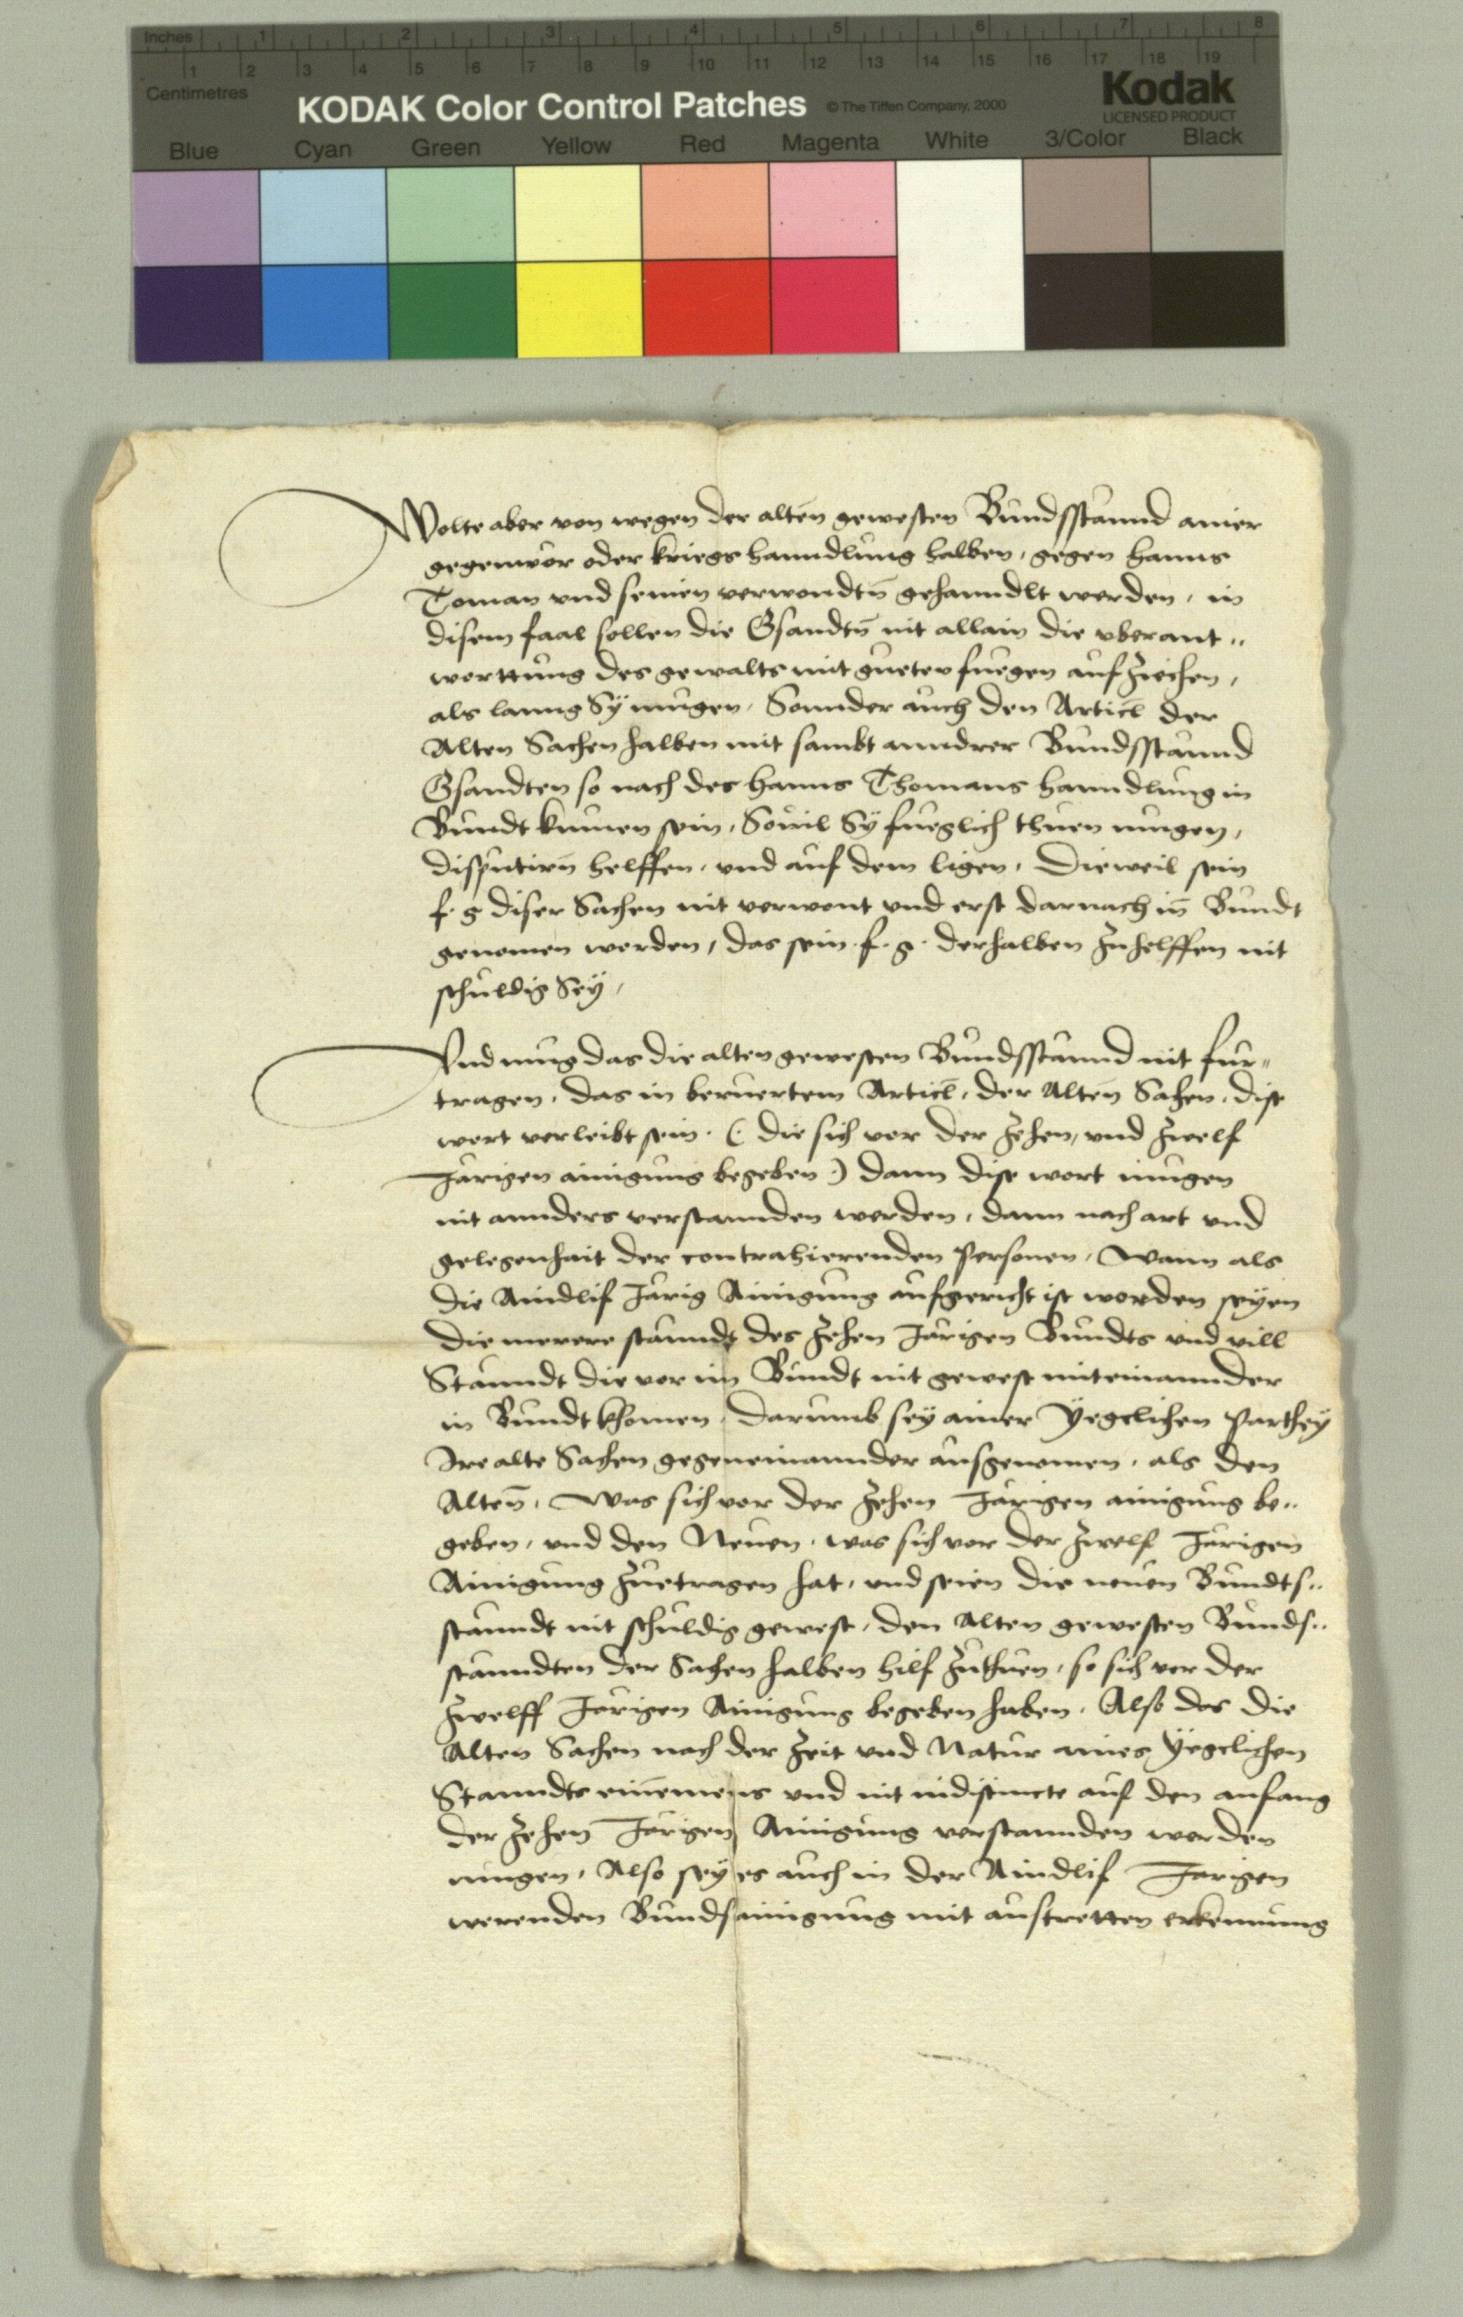 Inches 1 2 3 4 5 6 7 8
1 2 3 4 5 6 7 8 9 10 11 12 13 14 15 16 17 18 19
Centimetres
KODAK Color Control Patches © The Tiffen Company, 2000 Kodak
LICENSED PRODUCT
Blue Cyan Green Yellow Red Magenta White 3/Color Black
Wolte aber von wegen der alten gewesten Bundsstannd ainer
gegenwör oder kriegs hanndlung halben, gegen hanns
Toman vnd seinen verwondtn̄ gehanndlt werden, in
disem faal sollen die Gsandtn̄ nit allain die vberant„
worttung des gewalts mit gueten fuegen aufziehen,
als lanng Sÿ mugen, Sonnder auch den Articl der
Alten Sachen halben mit sambt anndrer Bundsstannd
Gsandten so nach des hanns Thomans hanndlung in
Bundt kumen sein, Souil Sÿ fueglich thuen mugen,
disputirn̄ helffen, vnd auf dem ligen, Dieweil sein
f. g diser Sachen nit verwont vnd erst darnach in̄ Bundt
genomen worden, das sein. f. g. derhalben zuhelffen nit
schuldig Seÿ,
Vnd mug das die alten gewesten Bundsstannd nit fur„
tragen, das in beruertem Articl, der Alten Sachen, dise
wort verleibt sein. (: die sich vor der zehen, vnd zwelf
Jarigen ainigung begeben :) dann dise wort mugen
nit annders verstannden werden, dann nach art vnd
gelegenhait der contrahierenden Personen, Wann als
die Aindlif Jarig Ainigung aufgericht ist worden seyen
die merere stanndt des zehen Jarigen Bundts vnd vill
Stanndt die vor im Bundt nit gewest miteinannder
in Bundt khomen, Darumb seÿ ainer Yegclichen Parthey
Ire alte Sachen gegeneinannder ausgenomen, als den
Alten̄, Was sich vor der zehen Jarigen ainigung be„
geben, vnd den Neuen, was sich vor der zwelf Jarigen
Ainigung zuetragen hat, vnd seien die neuen Bundts„
stanndt nit schuldig gewest, den Alten gewesten Bunds„
stanndten der Sachen halben hilf zuthuen, so sich vor der
zwelff Jarigen Ainigung begeben haben, Also das die
Alten Sachen nach der Zeit vnd Natur aines Yegclichen
Stanndts einemens vnd nit indistincte auf den anfang
der zehen Jarigen Ainigung verstannden werden
mugen, Also seÿ es auch in der Aindlif Jarigen
werenden Bundsainigung mit austretten erkennung